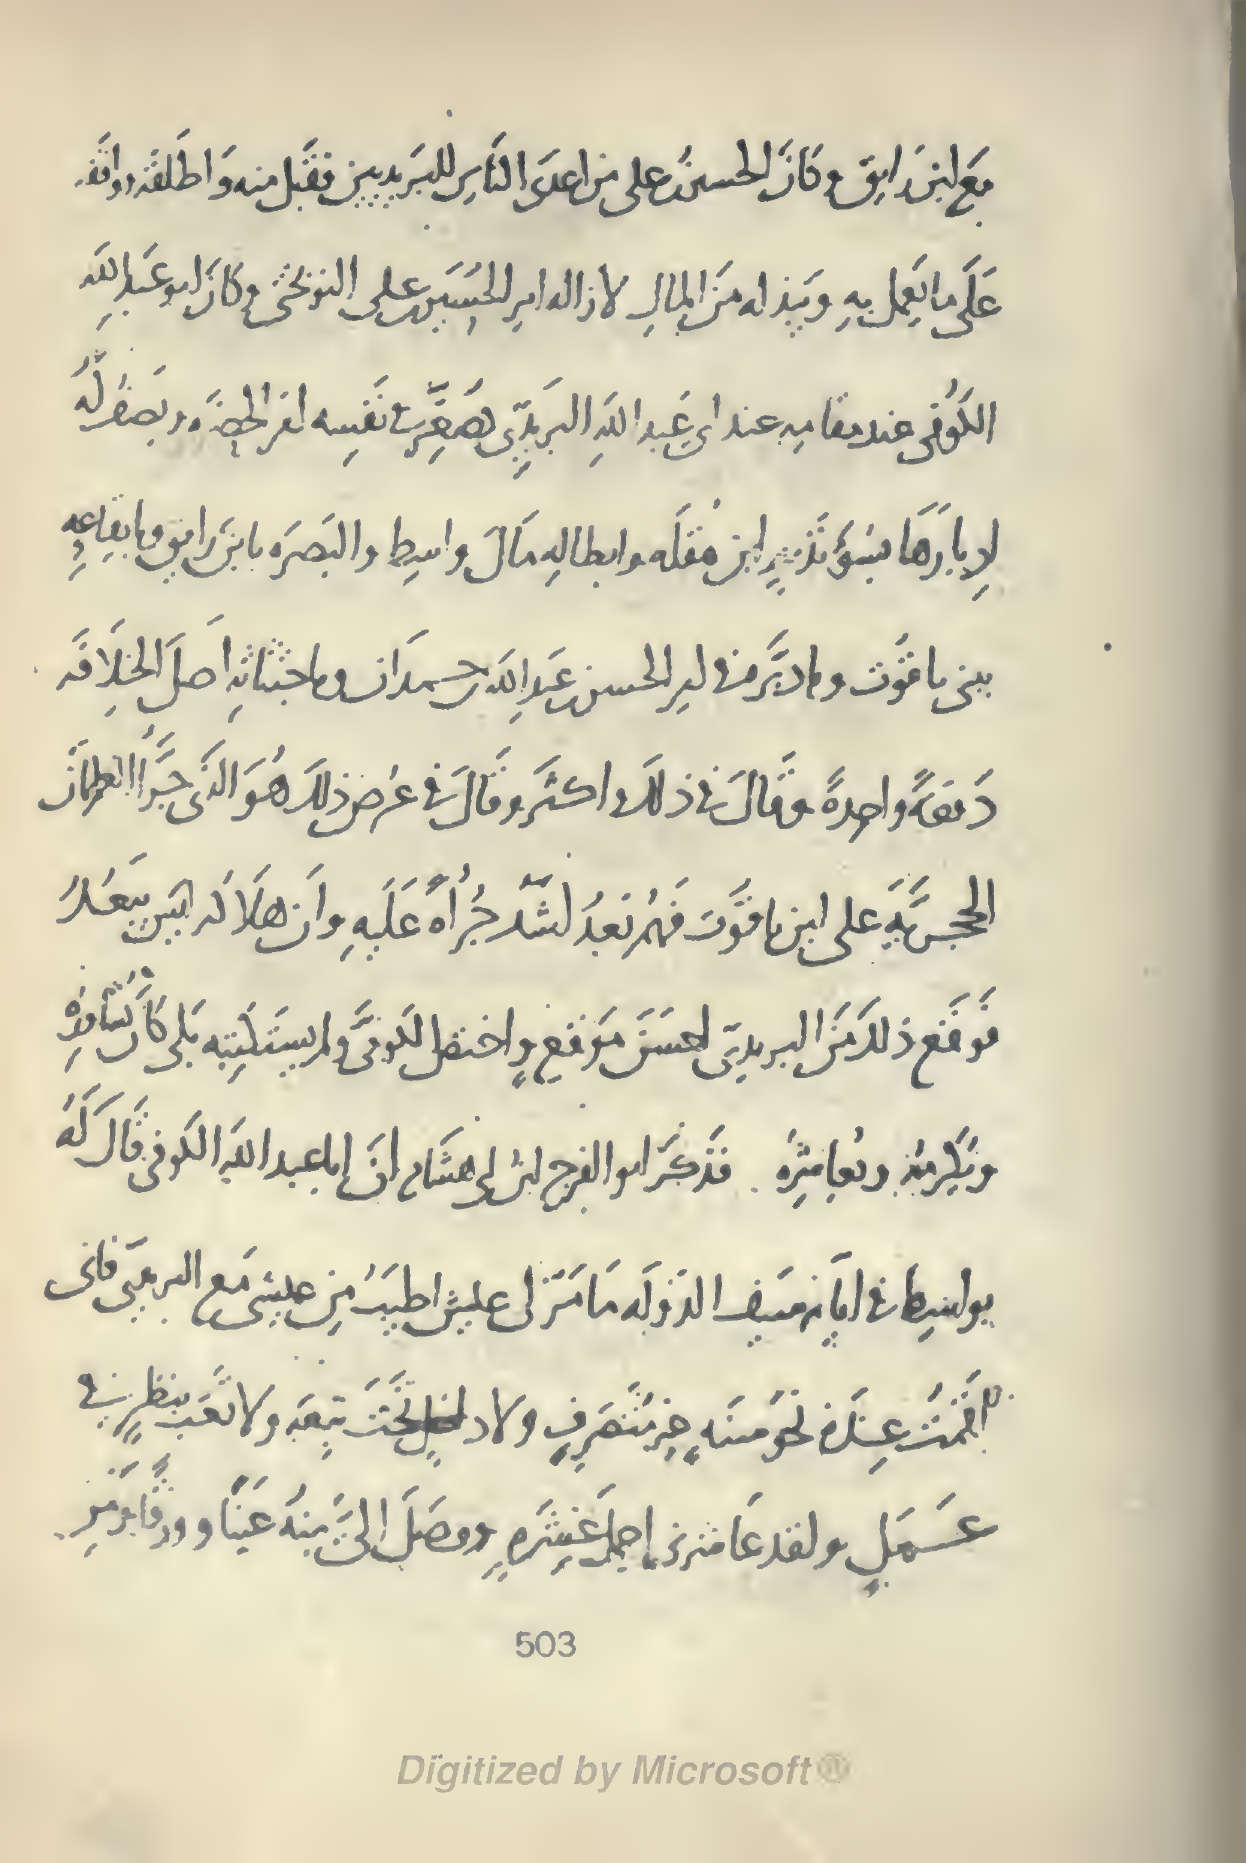 مع ابن رَايق وكَانَ الحسين بن على من اعدَى النَاسِ للبَريديين فقَبل منه وَاطلَقه ووافقه
عَلَى مَا يَعمل بهِ وبَذله مَن المالِ لازاله ابى الحُسَين بن على النوبختى وكانَ ابو عَبد اللهَ
الكُوفى عند مقامِه عند ابى عَبد اللهَ البَريدّى يصَغّر فى نَفسِه امر الحضرَه ويَصفُ لهُ
ادبارَهَا بسُوء تَدبيرِ ابن مُقلَه وابطالهِ مَالَ واسِط والبَصرَه بابن رَايق وايقاعِهِ
ببنى ياقُوت وما دبَّره فى امر الحسن بن عَبد اللهَ بن حمدَان وباجتثاثهِ اَصلَ الخِلَافَه
دَفعَهً واحِدهً وقَالَ فى ذلك واكثَر وقَالَ فى عُرض ذلكَ هُوَ الذَى جَرَّا الغلمَان
الحجريَّهَ على ابن ياقُوت فَهُم بَعدُ اشَدّ جُراهً عَلَيهِ وانَ هلَاكه ليَس يبَعُدُ
فوقَع ذلكَ مَن البريدِىّ احسَنَ مَوقع واختصّ الكوفىَّ ولم يستَكتِبه بَلى كَانَ يُشاورُه
ويُكرِمُه ويُعاشِرُه . فذَكَر ابو الفرج ابن ابى هشَام انَ ابا عبد اللهَ الكوفى قَالَ لَهُ
بواسِط فى ايّام سَيف الدَولَه مَا مَرّ لى عيش اطيَبُ مِن عيشى مَع البريدىّ فانى
اقَمتُ عِندَه نحوَ سنَه غير مُتَصَرفٍ ولا داخل تحَتَ تبِعَه ولا تَعَب بنظر فى
عَمَلٍ ولقد عَاشرنى اجمل عِشرَهٍ ووصَلَ الىَّ مِنهُ عَينًا وورقًا ومَن
503
Digitized by Microsoft®